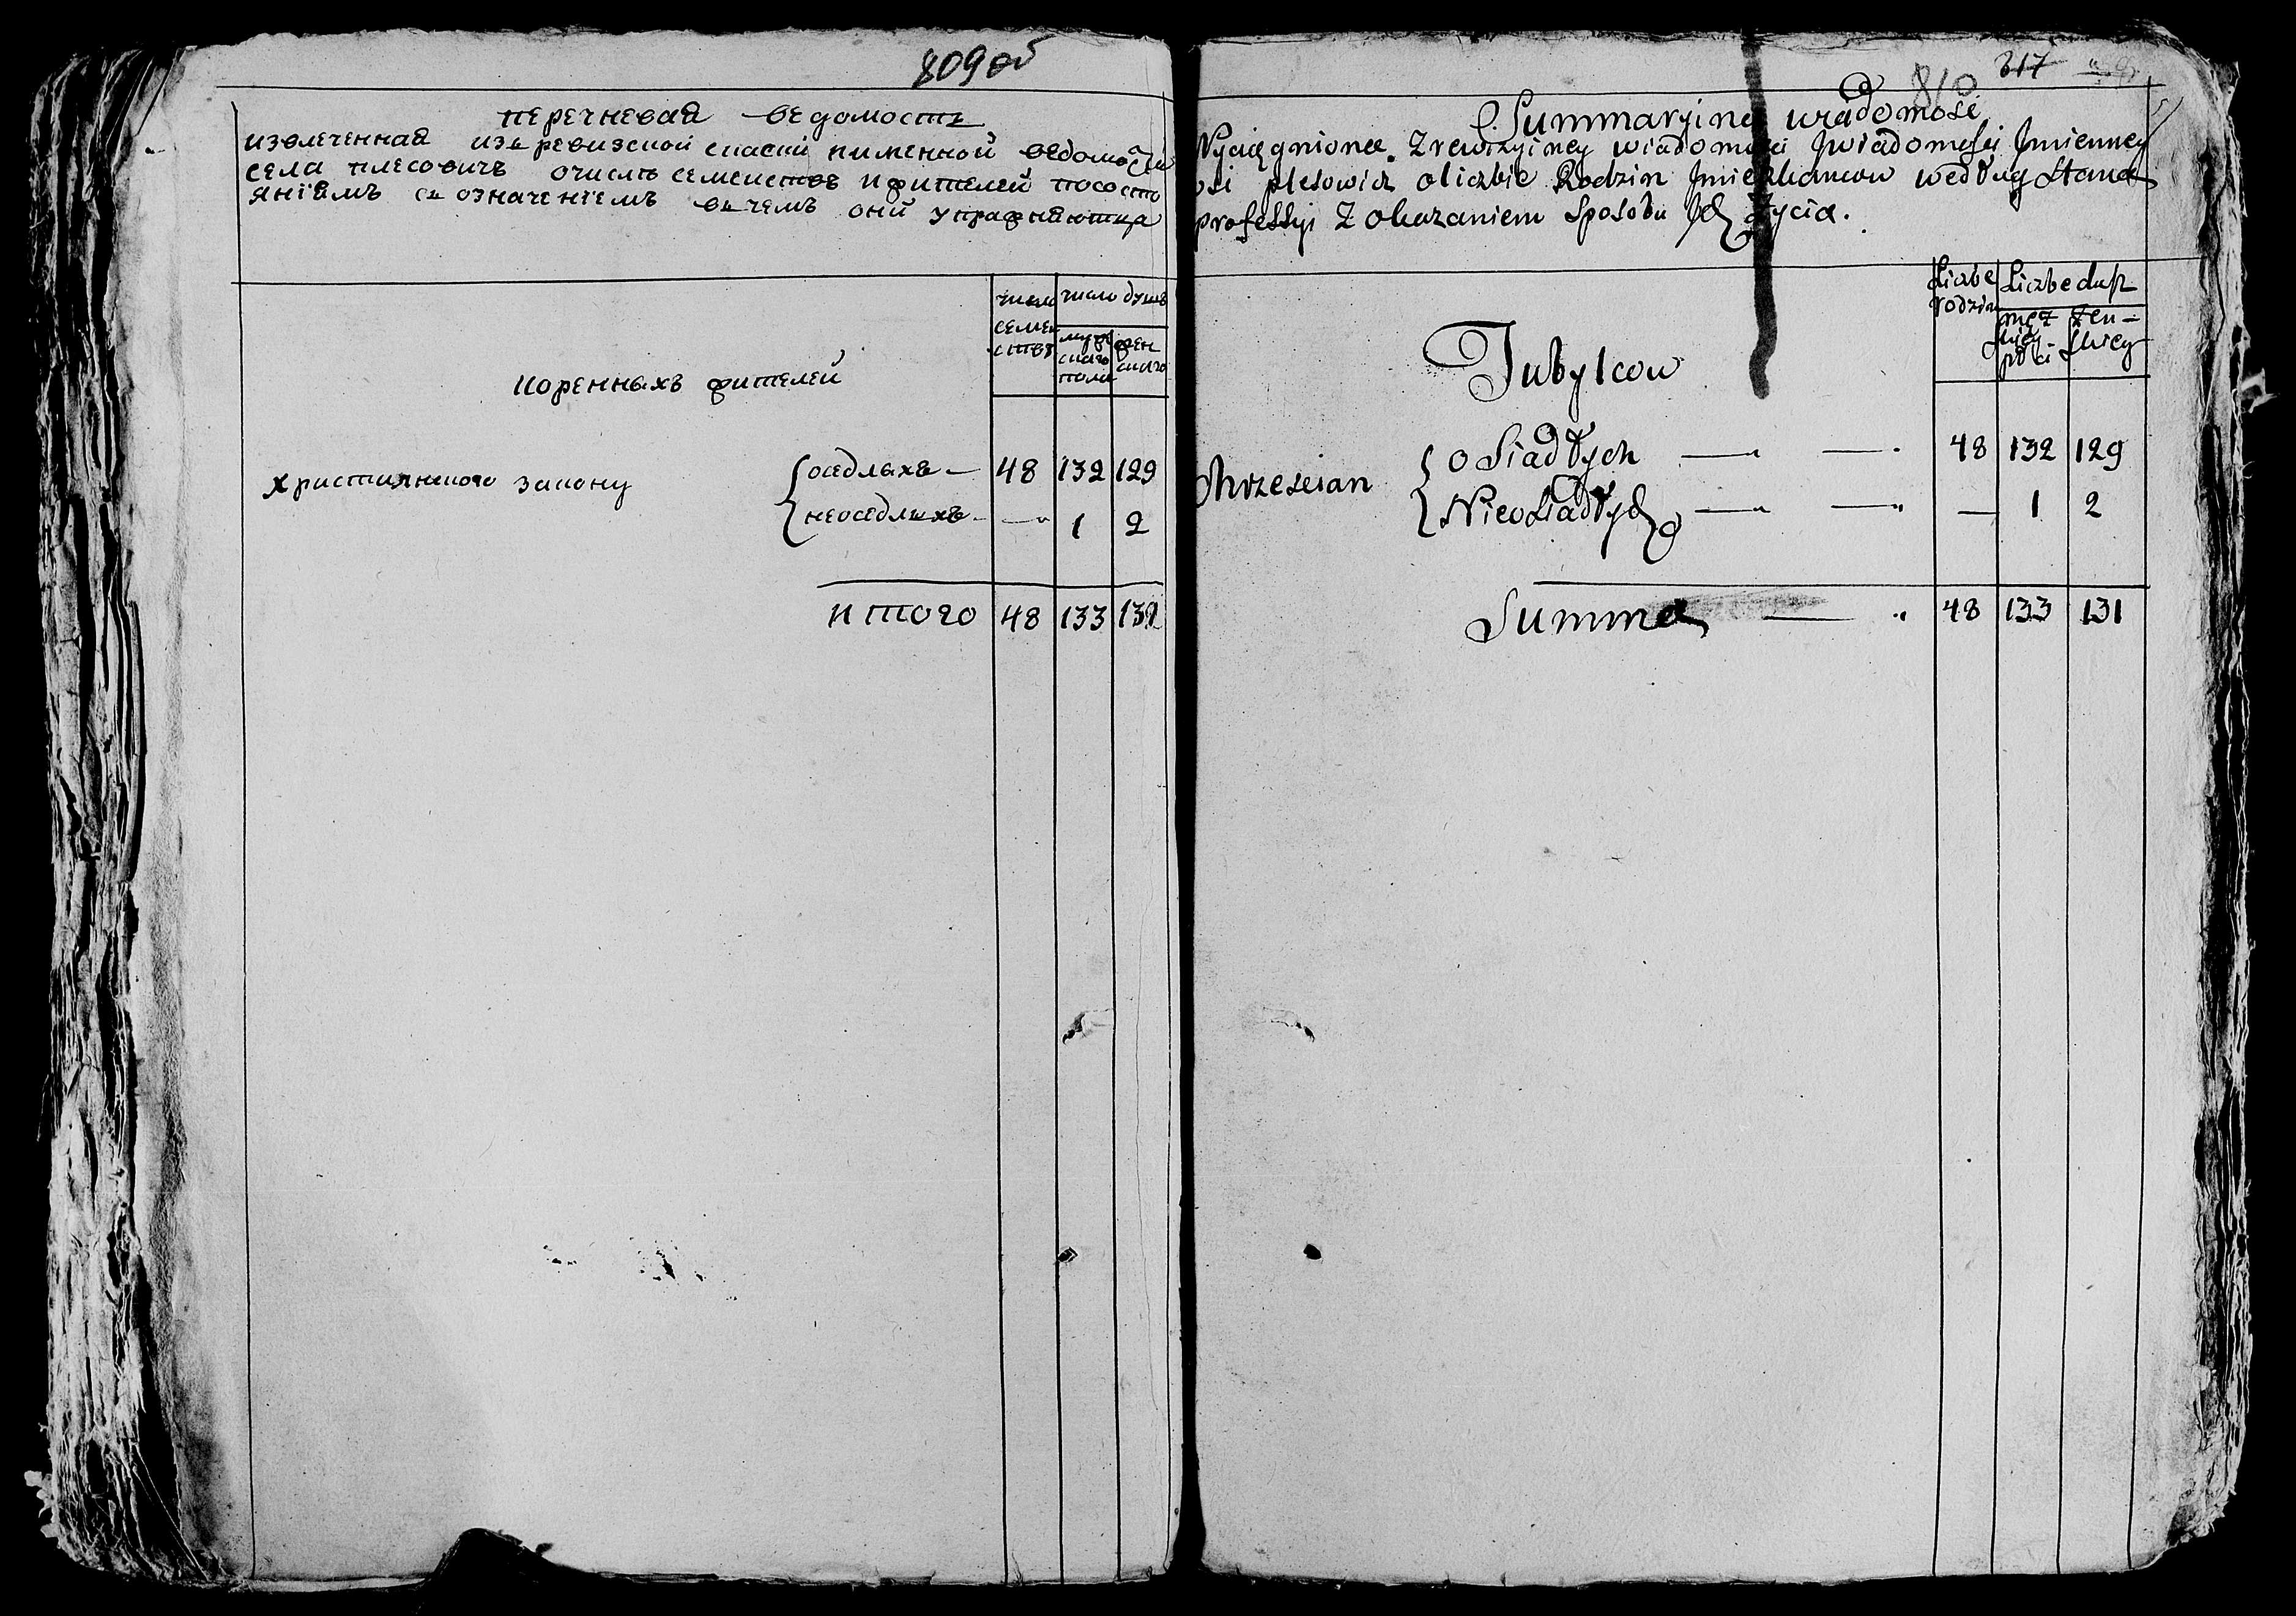 809 об
перечневая ведомость
извлеченная изъ ревизской скаски поименной ведомости
села плесовичъ очисле семействъ и жителей пососто
яніемъ съ означеніемъ вчемъ они упражняютца
число семей ствъ
число душъ
мужескаго пола
женскаго
коренныхъ жителей
христіянского закону
оседлыхъ — 48 132 129
неоседлыхъ — — 1 2
итого 48 133 131
810 317
Summaryina wiadomość
Wyciągniona Zrewizyiney wiadomości Jwiadomości Jmienney
wsi plesowicz oliczbie Rodzin Jmieszkancow według Stanu
professyi Z okazaniem Sposobu Jch Życia.
Liczba rodzin
Liczba dusz
męzkiey płci
żenskiey
Tubylcow
Chrzescian
oSiadłych — — 48 132 129
NieoSiadłych — — — 1 2
Summa — 48 133 131